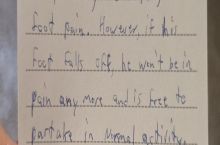 foot pain. However, if his
foot falls off, he won't be in
pain any more and is free to
partake in normal activity.